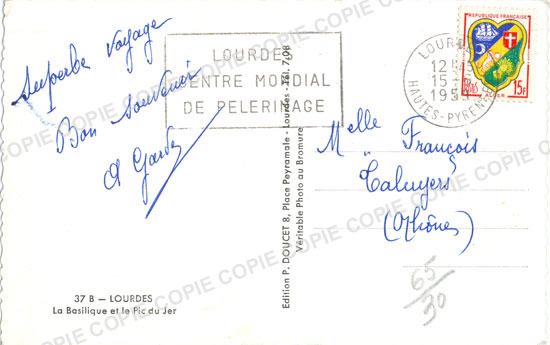 Superbe voyage
Bon Souvenir
A Garde
LOURDES
CENTRE MONDIAL
DE PELERINAGE
RÉPUBLIQUE FRANÇAISE
15F
ALGER
LOURDES
12H
15
195
HAUTES-PYRENEES
Melle François
Taluyers
(Rhône)
Edition P. DOUCET 8, Place Peyramale - Lourdes - Tél. 7.08
Véritable Photo au Bromure
37 B — LOURDES
La Basilique et le Pic du Jer
65
30
COPIE COPIE COPIE COPIE COPIE COPIE